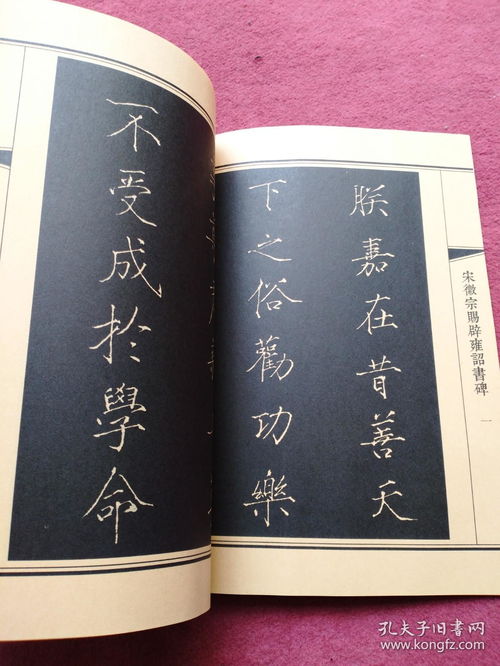 宋徽宗賜辟雍詔書碑
一
朕嘉在昔善天
下之俗勸功樂
不受成於學命
孔夫子旧书网
www.kongfz.com